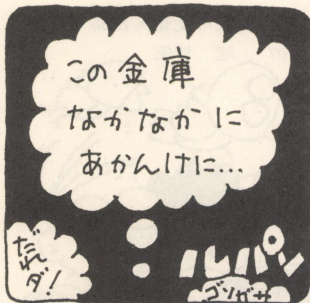 この金庫
なかなかに
あかんけに…
だれダ!
ルパン
ゴソガサ